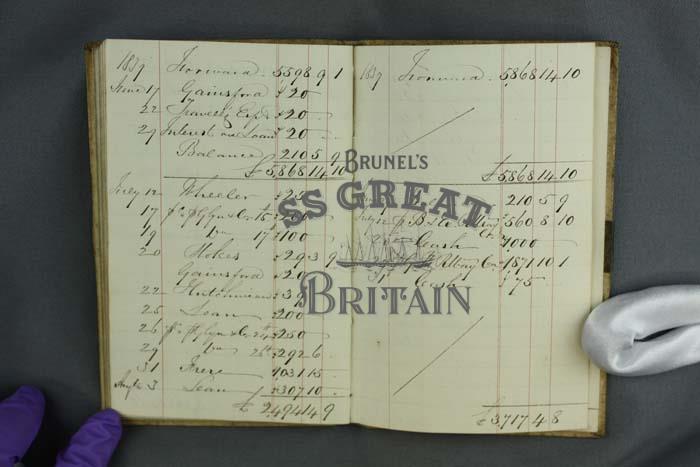 1839 Forward . 5598 9 1
June 17 Gainsford £20
22 Travellg Exps £20
29 Interest on Loan £20
Balance 210 5 9
£5,868 14 10
July 12 Wheeler £25
17
19 17th £100
20 Stokes £29 3 9
Gainsford £20
22 Hutchinson £39
25 Loan £200
26 £250
29 26th £292 6
31 Frere 1031 15
Augt 3 Loan £307 10
£2494 14 9
1839 Forward . 5,868 14 10
£5,868 14 10
210 5 9
560 8 10
Cash 1000
1871 10 1
Cash £75
£3717 4 8
BRUNEL'S
SS GREAT
BRITAIN